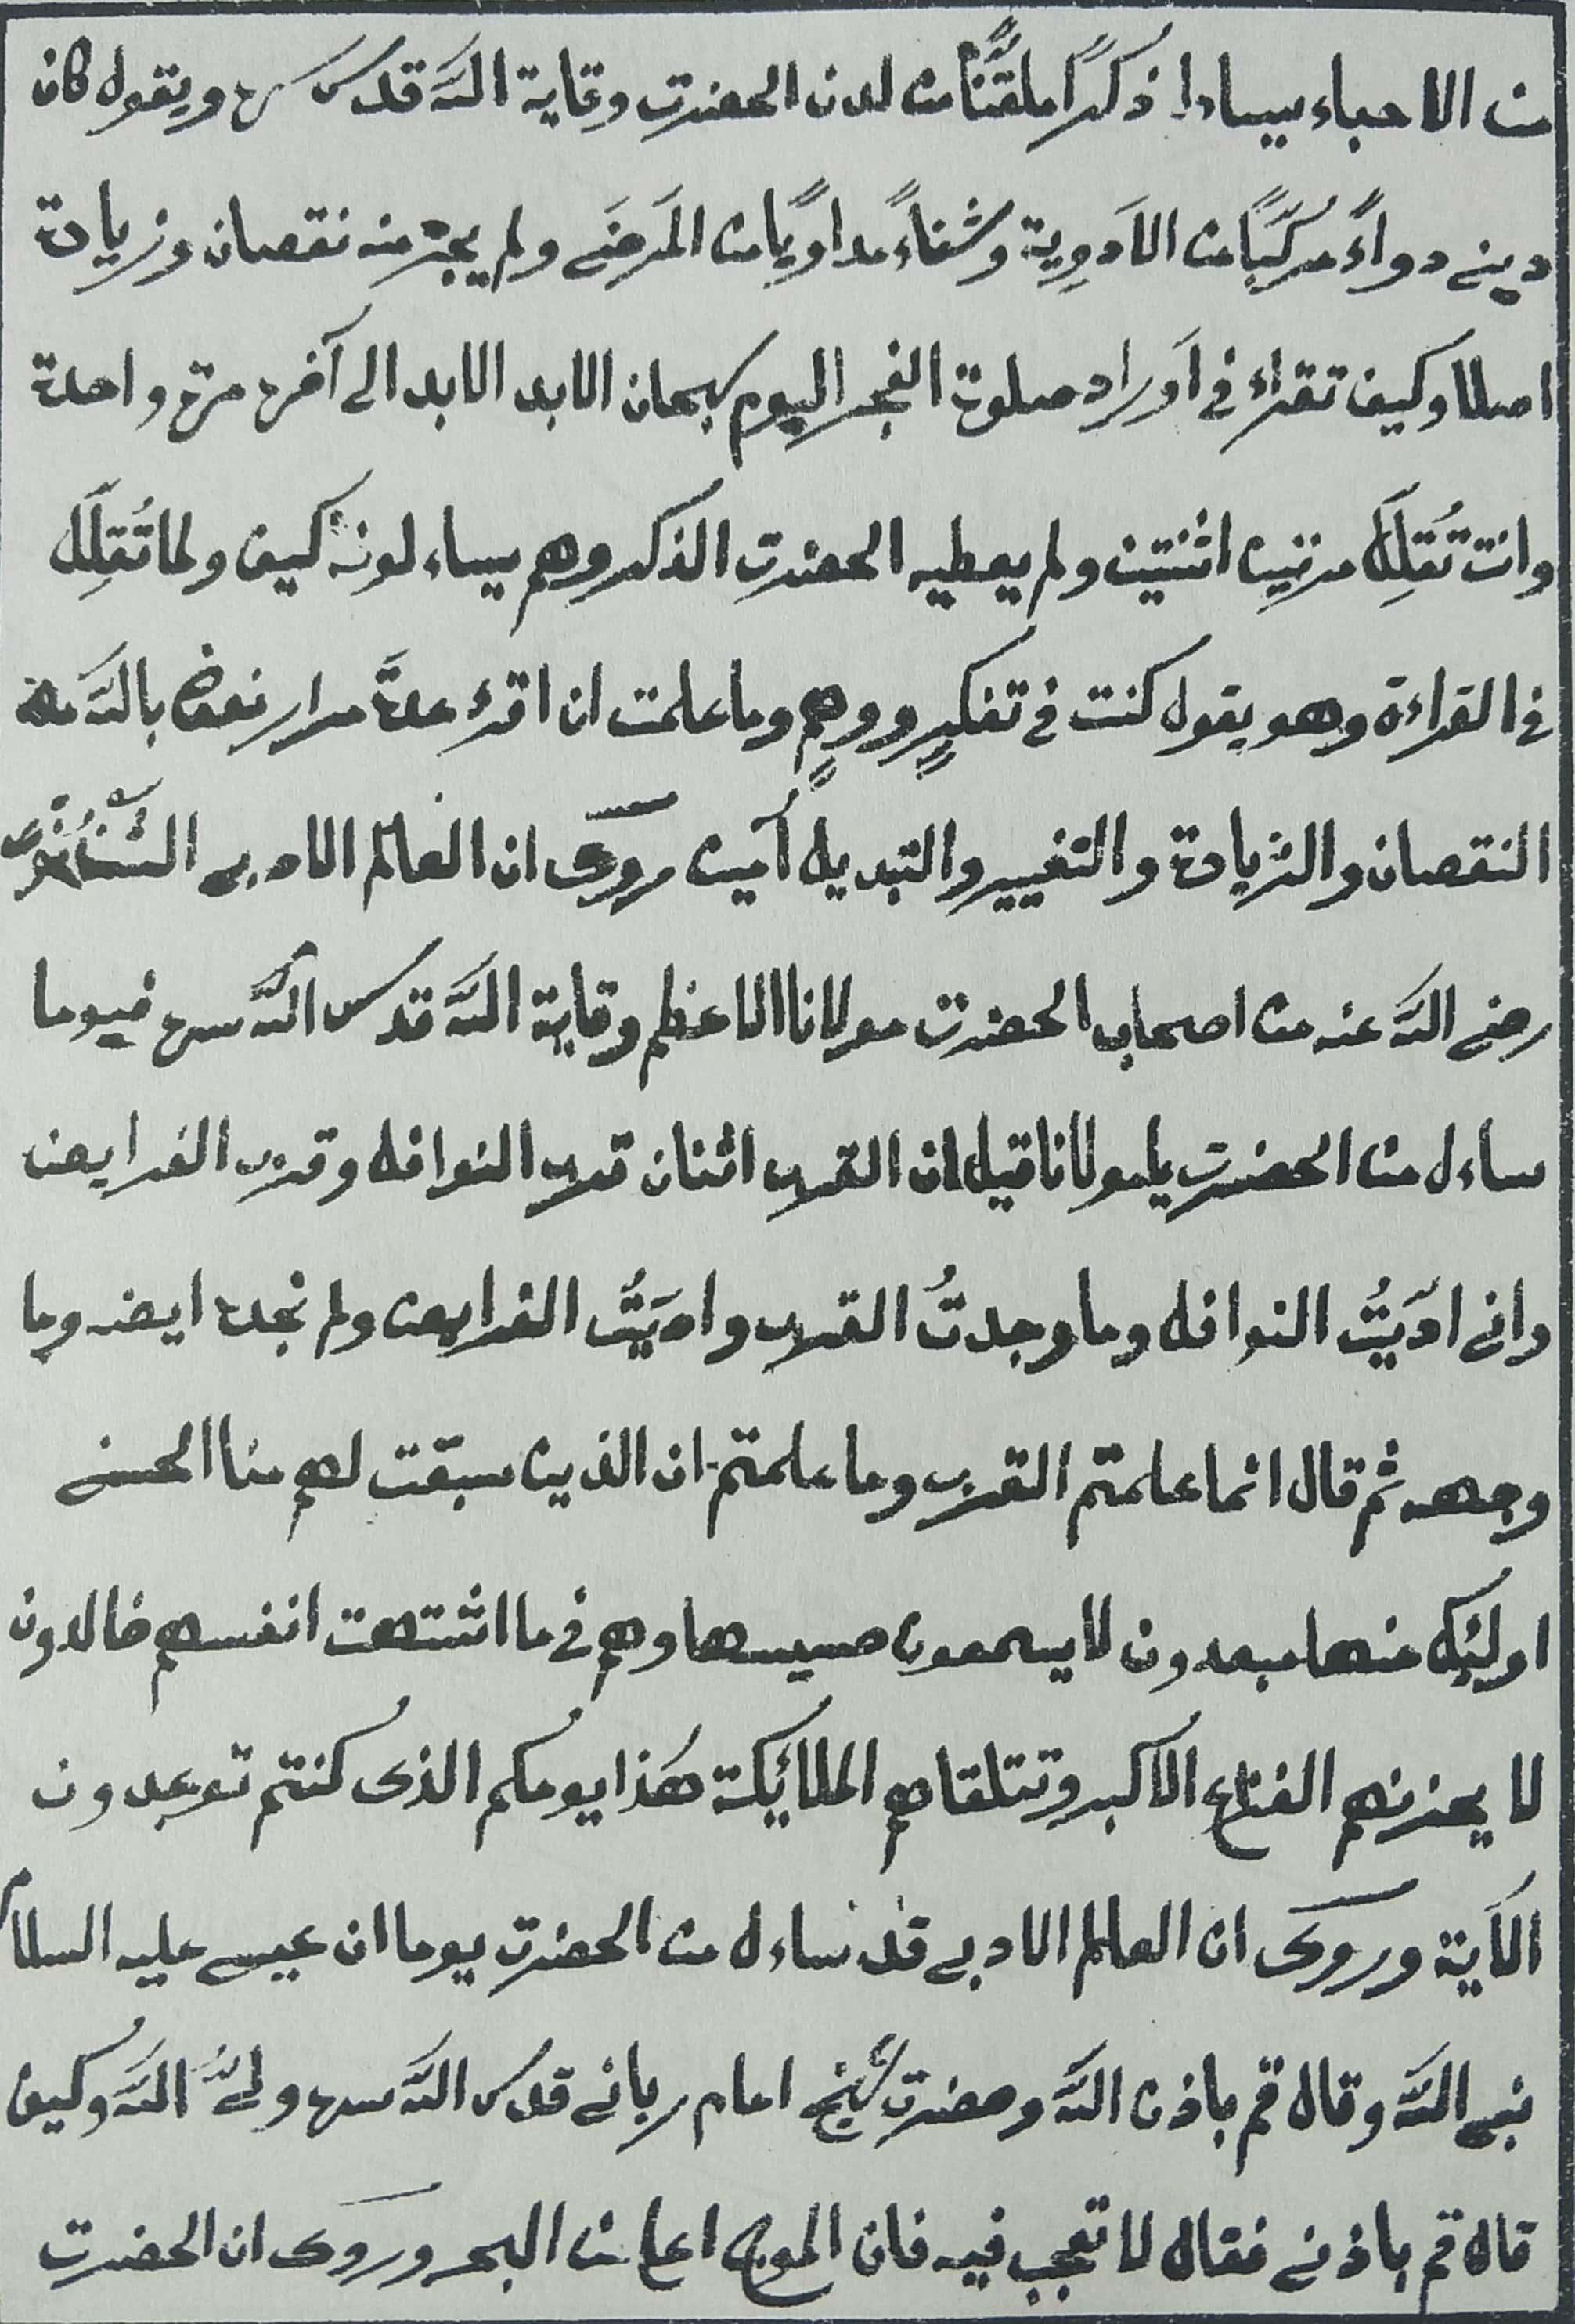 من الاحباء يساءل ذكرًا ملقَّنًا من لدن الحضرت وقاية اللّه قدس سره ويقول كان
دينى دواءً مركَّبًا من الاَدوِية وشفاءً مداوِيًا من المَرضَى ولم يجز منه نقصان وزيادة
اصلا وكيف تقراء فى اَوراد صلوة الفجر اليوم سبحان الابد الابد الى آخره مرة واحدة
وانت تُقلِّلَ مرتين اثنتين ولم يعطيه الحضرت الذكر وهم يساءلونه كيف ولما تُقلِّلَ
فى القراءة وهو يقول كنت فى تفكيرٍ ووهمٍ وما علمت ان اقرء عدة مرار نعوذ باللّه من
النقصان والزيادة والتغيير والتبديل آمين روى ان العالم الادبى
رضى اللّه عنه من اصحاب الحضرت مولانا الاعظم وقاية اللّه قدس اللّه سره فيوما
ساءل من الحضرت يا مولانا قيل ان القرب اثنان قرب النوافل وقرب الفرايض
وانى ادَيتُ النوافل وما وجدتُ القرب وادَيتُ الفرايض ولم نجده ايضه وما
وجهه ثم قال انما علمتم القرب وما علمتم ان الذين سبقت لهم منا الحسنى
اولئِك عنها مبعدون لا يسمعون حسيسها وهم فى ما اشتهت انفسهم خالدون
لا يحزنهم الفزع الاكبر وتتلقاهم الملائِكة هَذا يومكم الذى كنتم توعدون
الآية وروى ان العالم الادبى قد ساءل من الحضرت يوما ان عيسى عليه السلام
نبى اللّه وقال قم باذن اللّه وحضرت شيخ امام ربانى قدس اللّه سره ولىُّ اللّه وكيف
قال قم باذنى فقال لا تعجب فيه فان الموج اعلى من البحر وروى ان الحضرت